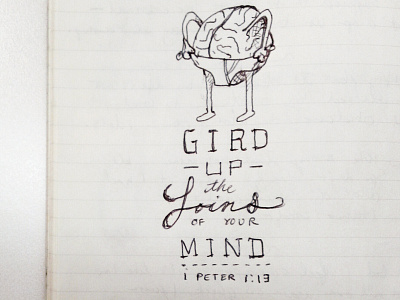 GIRD
-UP-
the
Loins
OF YOUR
MIND
1 PETER 1:13